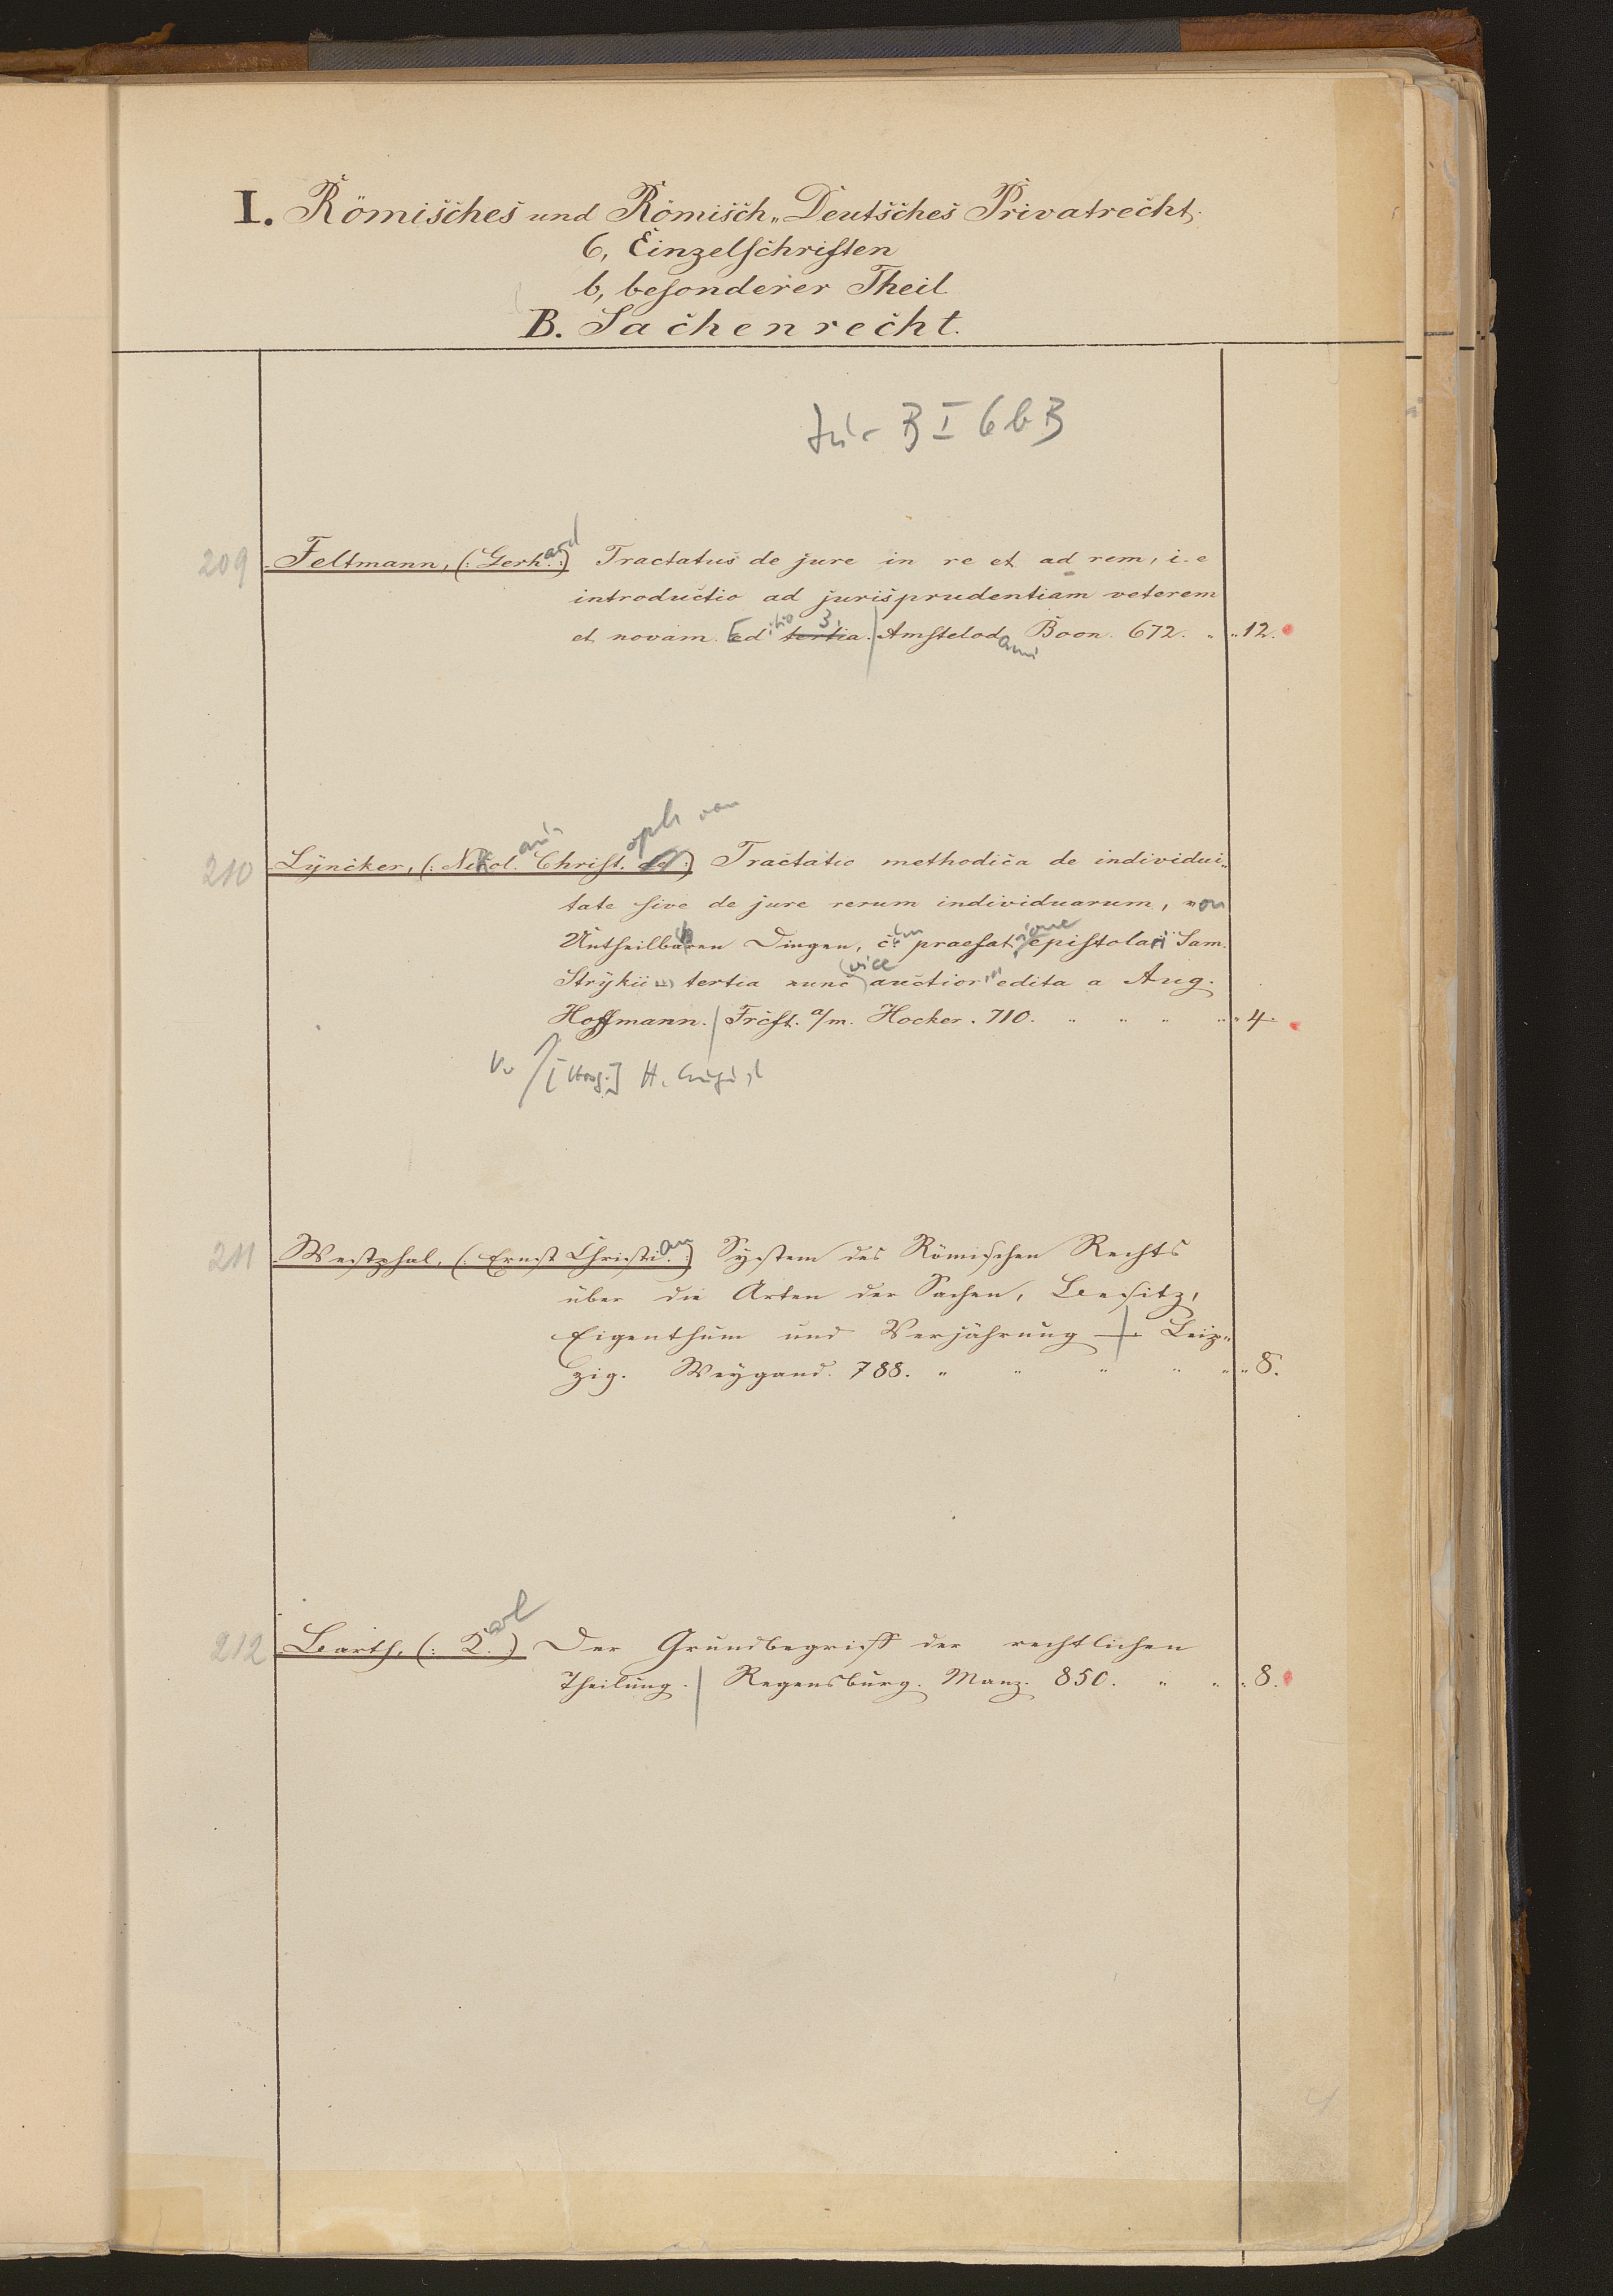 I. Römisches und Römisch„Deutsches Privatrecht.
6, Einzelschriften
b, besonderer Theil
B. Sachenrecht.
Jur B I 6 b B
209 Feltmann, (: Gerhard :) Tractatus de jure in re et ad rem, i. e
introductio ad jurisprudentiam veterem
et novam. Editio 3. tertia. / Amstelodami Boon. 672. „ „ 12.
210 Lyncker, (: Nikol. Christoph von :) Tractatio methodica de individui„
tate sive de jure rerum individuarum, von
Untheilbaren Dingen, cum praefatione epistolari Sam.
Strykii tertia nunc vice auctior edita a Aug.
Hoffmann. / Frcft. a/m. Hocker. 710. „ „ „ „ „ 4.
211 Westphal, (: Ernst Christian :) System des Römischen Rechts
über die Arten der Sachen, Besitz,
Eigenthum und Verjährung — Leip„
zig. Weygand. 788. „ „ „ „ „ „ 8.
212 Barth, (: Karl :) Der Grundbegriff der rechtlichen
Theilung. / Regensburg. Manz. 850. „ „ „ 8.